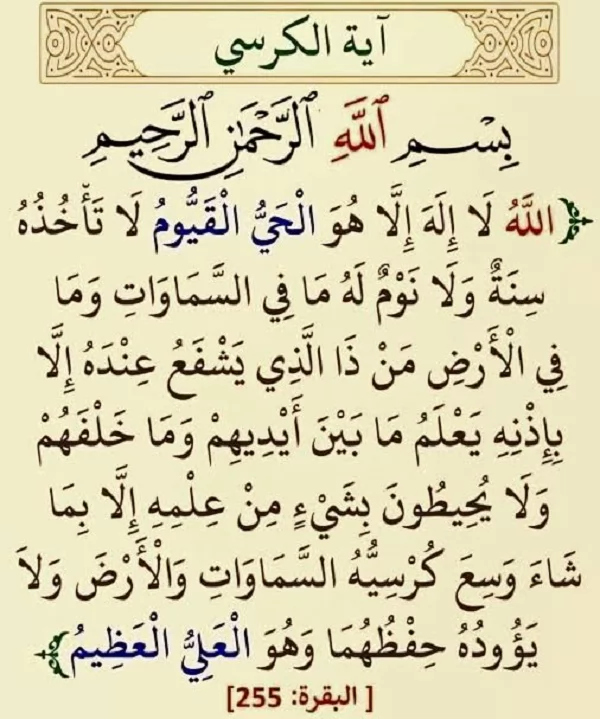 آية الكرسي
بِسْمِ ٱللَّهِ ٱلرَّحْمَٰنِ ٱلرَّحِيمِ
﴿اللَّهُ لَا إِلَهَ إِلَّا هُوَ الْحَيُّ الْقَيُّومُ لَا تَأْخُذُهُ
سِنَةٌ وَلَا نَوْمٌ لَهُ مَا فِي السَّمَاوَاتِ وَمَا
فِي الْأَرْضِ مَنْ ذَا الَّذِي يَشْفَعُ عِنْدَهُ إِلَّا
بِإِذْنِهِ يَعْلَمُ مَا بَيْنَ أَيْدِيهِمْ وَمَا خَلْفَهُمْ
وَلَا يُحِيطُونَ بِشَيْءٍ مِنْ عِلْمِهِ إِلَّا بِمَا
شَاءَ وَسِعَ كُرْسِيُّهُ السَّمَاوَاتِ وَالْأَرْضَ وَلَا
يَؤُودُهُ حِفْظُهُمَا وَهُوَ الْعَلِيُّ الْعَظِيمُ﴾
[البقرة: 255]